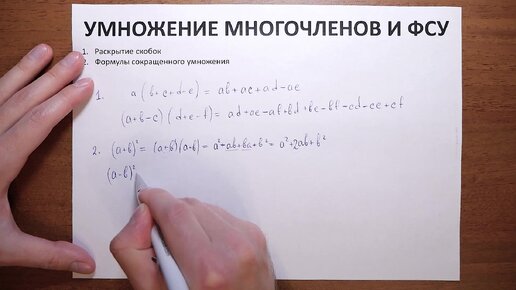 УМНОЖЕНИЕ МНОГОЧЛЕНОВ И ФСУ
1. Раскрытие скобок
2. Формулы сокращенного умножения
1. a(b+c+d-e) = ab+ac+ad-ae
(a+b-c)(d+e-f) = ad+ae-af+bd+be-bf-cd-ce+cf
2. (a+b)² = (a+b)(a+b) = a²+ab+ba+b² = a²+2ab+b²
(a-b)²